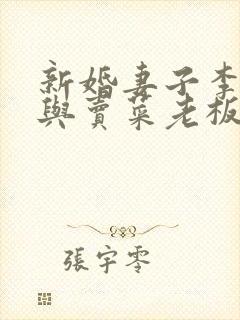 新婚妻子李
與賣菜老板
張宇零